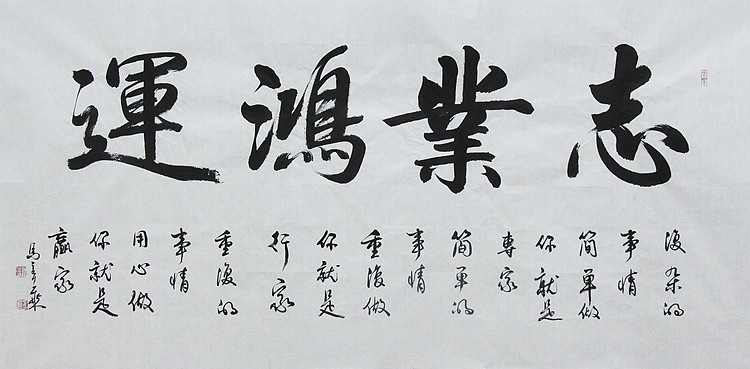 志業鴻運
復杂的
事情
简單做
你就是
專家
简單的
事情
重復做
你就是
行家
重復的
事情
用心做
你就是
贏家
馬